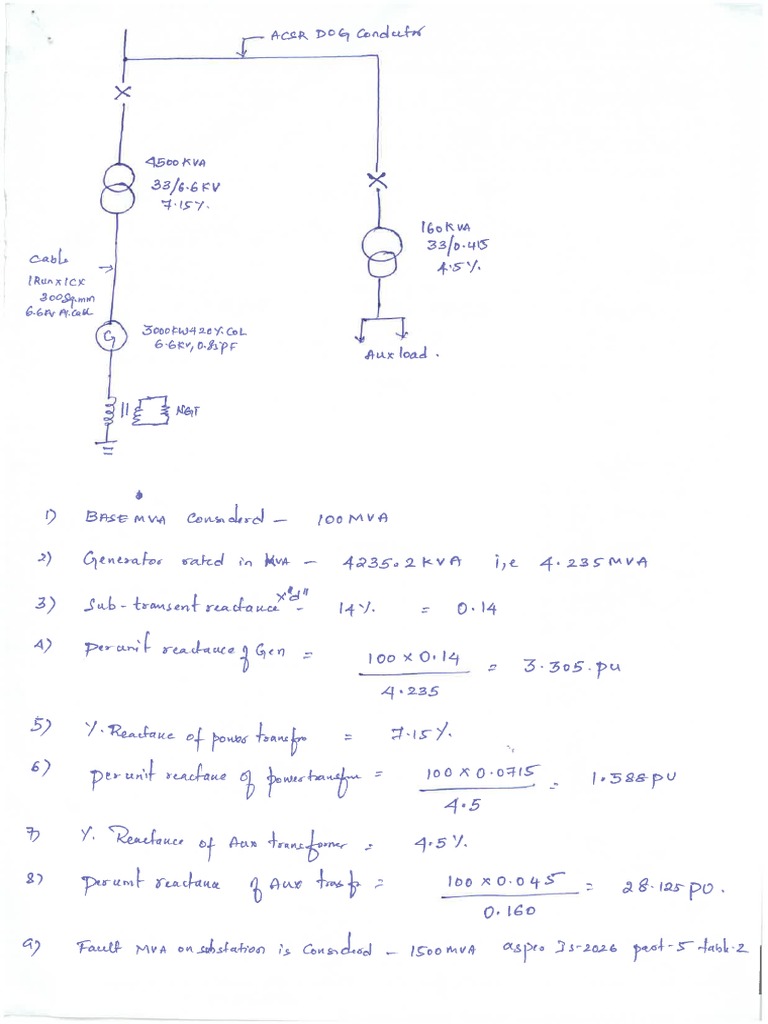 ACSR DOG Conductor
4500 KVA
33/6.6 KV
7.15%.
160 KVA
33/0.415
4.5%.
Cable
1Run x 1C x
300Sq.mm
6.6KV Al.
G
3000KW+20%.COL
6.6KV, 0.85PF
Aux load.
NGT
1) BASE MVA Considerd - 100 MVA
2) Generator rated in MVA - 4235.2 KVA i,e 4.235MVA
3) Sub-transent reactance x"d" - 14%. = 0.14
4) per unit reactance of Gen = 100 x 0.14 / 4.235 = 3.305.pu
5) %. Reactance of power transfr = 7.15%.
6) per unit reactane of power transfr = 100 x 0.0715 / 4.5 = 1.588 PU
7) %. Reactance of Aux transformer = 4.5%.
8) per unit reactance of Aux trasfr = 100 x 0.045 / 0.160 = 28.125 PU.
9) Fault MVA on substation is Considerd - 1500 MVA as per IS-2026 part-5 table-2